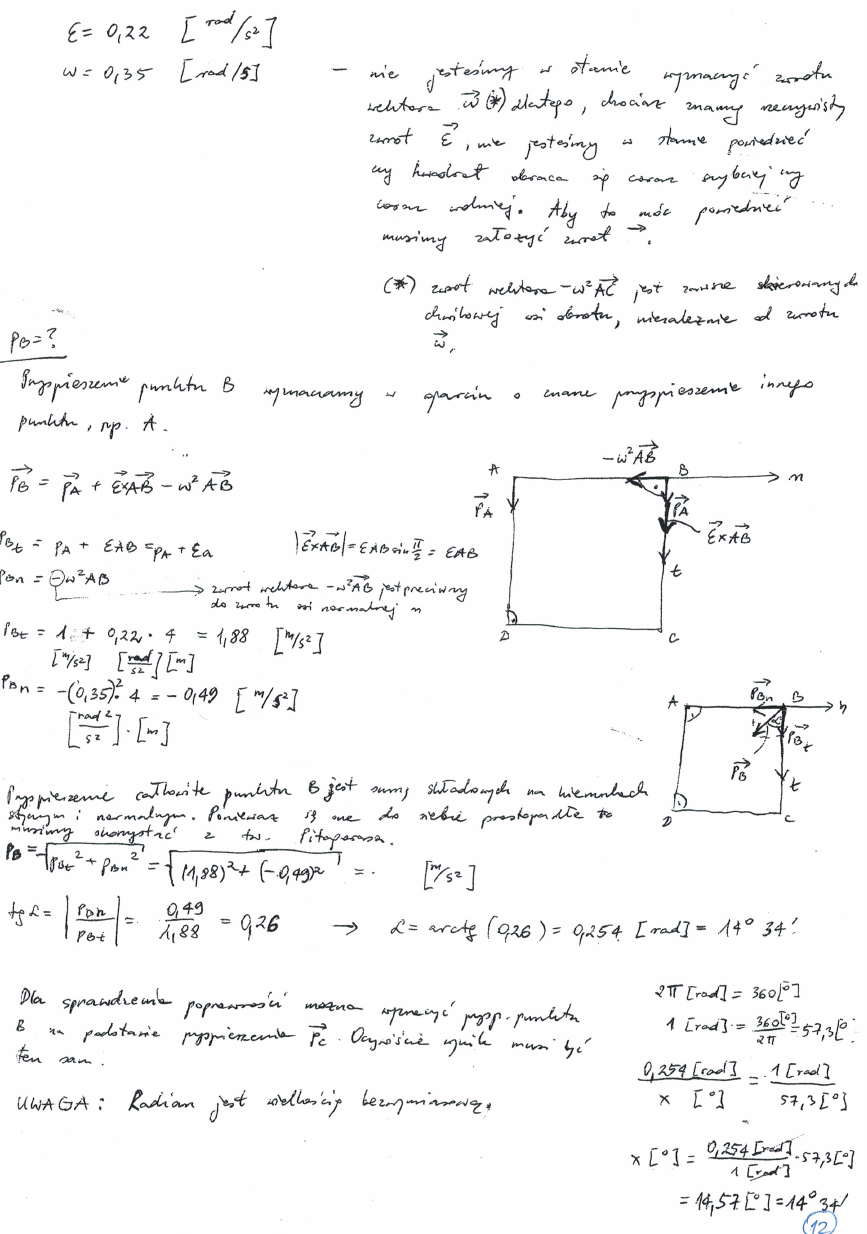 ε = 0,22 [rad/s²]
ω = 0,35 [rad/s]
– nie jesteśmy w stanie wyznaczyć zwrotu
wektora ω⃗ (*) dlatego, chociaż znamy rzeczywisty
zwrot ε⃗, nie jesteśmy w stanie powiedzieć
czy kwadrat obraca się coraz szybciej czy
coraz wolniej. Aby to móc powiedzieć
musimy założyć zwrot →.
(*) zwrot wektora -ω²AC⃗ jest zawsze skierowany do
chwilowej osi obrotu, niezależnie od zwrotu
ω⃗.
pB = ?
Przyspieszenie punktu B wyznaczamy w oparciu o znane przyspieszenie innego
punktu, np. A.
p⃗B = p⃗A + ε⃗×AB⃗ - ω²AB⃗
pBt = pA + εAB = pA + εa |ε⃗×AB⃗| = εAB sin π/2 = εAB
pBn = -ω²AB
zwrot wektora -ω²AB⃗ jest przeciwny
do zwrotu osi normalnej n
pBt = 1 + 0,22 · 4 = 1,88 [m/s²]
[m/s²] [rad/s²] [m]
pBn = -(0,35)² · 4 = -0,49 [m/s²]
[rad²/s²] · [m]
A -ω²AB⃗ B n
p⃗A p⃗A
ε⃗×AB⃗
t
D C
A p⃗Bn B n
α p⃗Bt
p⃗B t
D C
Przyspieszenie całkowite punktu B jest sumą składowych na kierunkach
stycznym i normalnym. Ponieważ są one do siebie prostopadłe to
musimy skorzystać z tw. Pitagorasa.
pB = √(pBt² + pBn²) = √((1,88)² + (-0,49)²) = · [m/s²]
tg α = |pBn/pBt| = 0,49/1,88 = 0,26 → α = arctg (0,26) = 0,254 [rad] = 14° 34'
Dla sprawdzenia poprawności można wyznaczyć przysp. punktu
B na podstawie przyspieszenia p⃗c. Oczywiście wynik musi być
ten sam.
UWAGA: Radian jest wielkością bezwymiarową.
2π [rad] = 360 [°]
1 [rad] = 360[°]/2π = 57,3 [°]
0,254 [rad] / x [°] = 1 [rad] / 57,3 [°]
x [°] = 0,254 [rad] / 1 [rad] · 57,3 [°]
= 14,57 [°] = 14° 34'
12